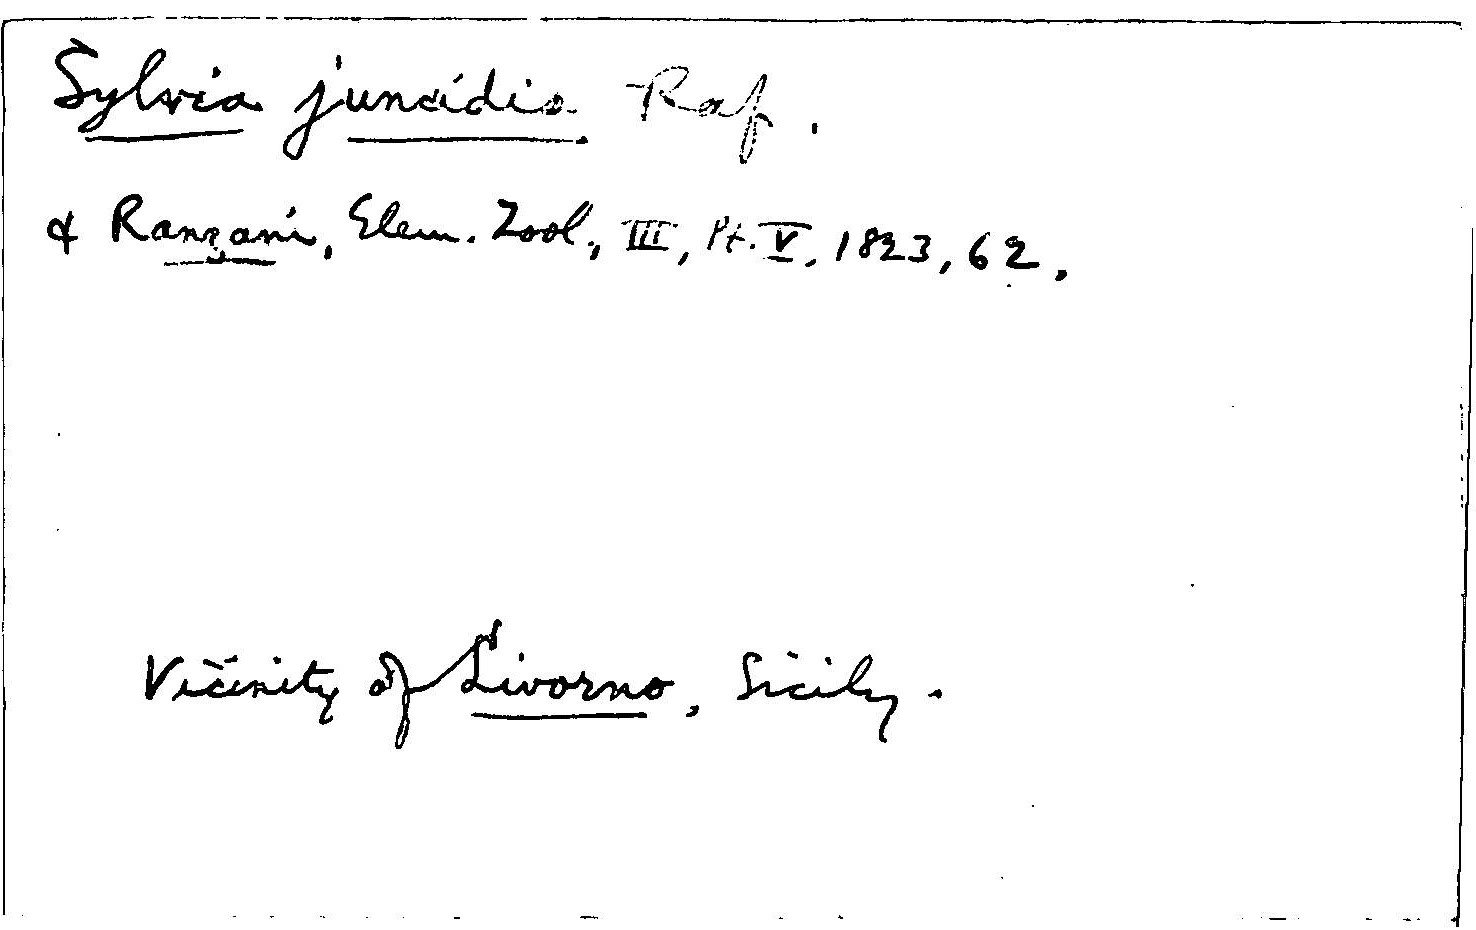 Sylvia juncidis Raf.
& Ranzani, Elem. Zool., III, Pt. V, 1823, 62.
Vicinity of Livorno, Sicily.